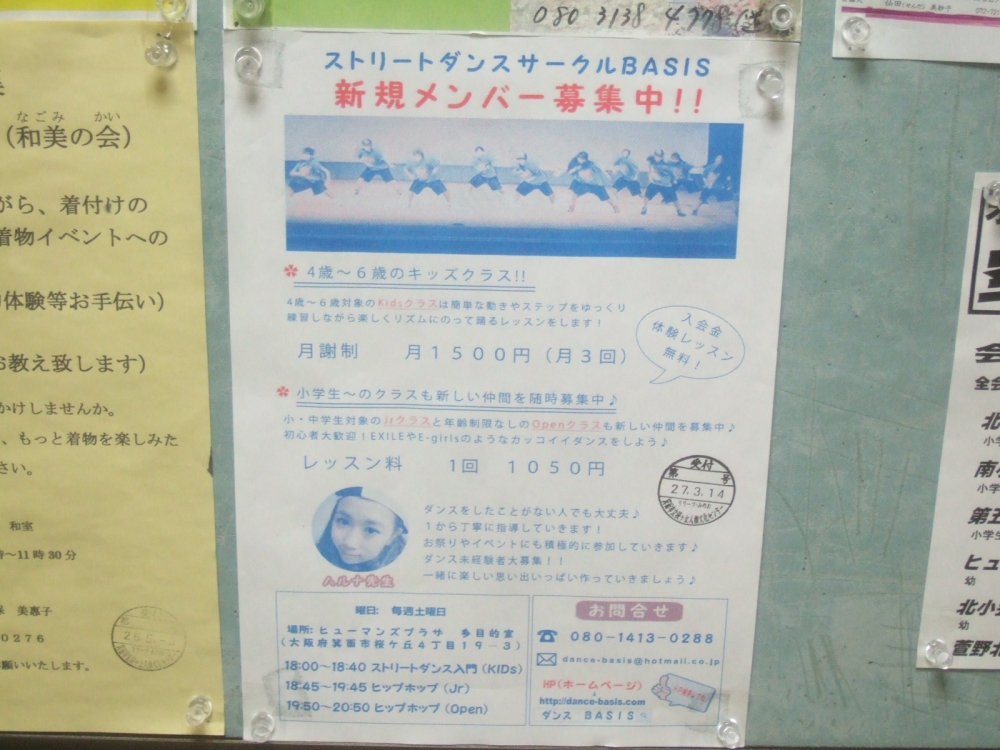 080 3138
ストリートダンスサークルBASIS
新規メンバー募集中!!
4歳～6歳のキッズクラス!!
4歳～6歳対象のKidsクラスは簡単な動きやステップをゆっくり
練習しながら楽しくリズムにのって踊るレッスンをします！
月謝制 月1500円（月3回）
入会金
体験レッスン
無料！
小学生～のクラスも新しい仲間を随時募集中♪
小・中学生対象のJrクラスと年齢制限なしのOpenクラスも新しい仲間を募集中♪
初心者大歓迎！EXILEやE-girlsのようなカッコイイダンスをしよう♪
レッスン料 1回 1050円
受付
第 号
27.3.14
ダンスをしたことがない人でも大丈夫♪
1から丁寧に指導していきます！
お祭りやイベントにも積極的に参加していきます♪
ダンス未経験者大募集！！
一緒に楽しい思い出いっぱい作っていきましょう♪
ハルナ先生
曜日: 毎週土曜日
場所: ヒューマンズプラザ 多目的室
（大阪府箕面市桜ケ丘4丁目19－3）
18:00～18:40 ストリートダンス入門（KIDs）
18:45～19:45 ヒップホップ（Jr）
19:50～20:50 ヒップホップ（Open）
お問合せ
080-1413-0288
dance-basis@hotmail.co.jp
HP（ホームページ）
http://dance-basis.com
ダンス BASIS
なごみ かい
（和美の会）
がら、着付けの
着物イベントへの
体験等お手伝い）
お教え致します）
かけしませんか。
、もっと着物を楽しみた
さい。
和室
～11時30分
美惠子
0276
願いいたします。
会
全会
北
小学
南
小学
第五
小学生
ヒュ
幼
北小
幼
萱野北